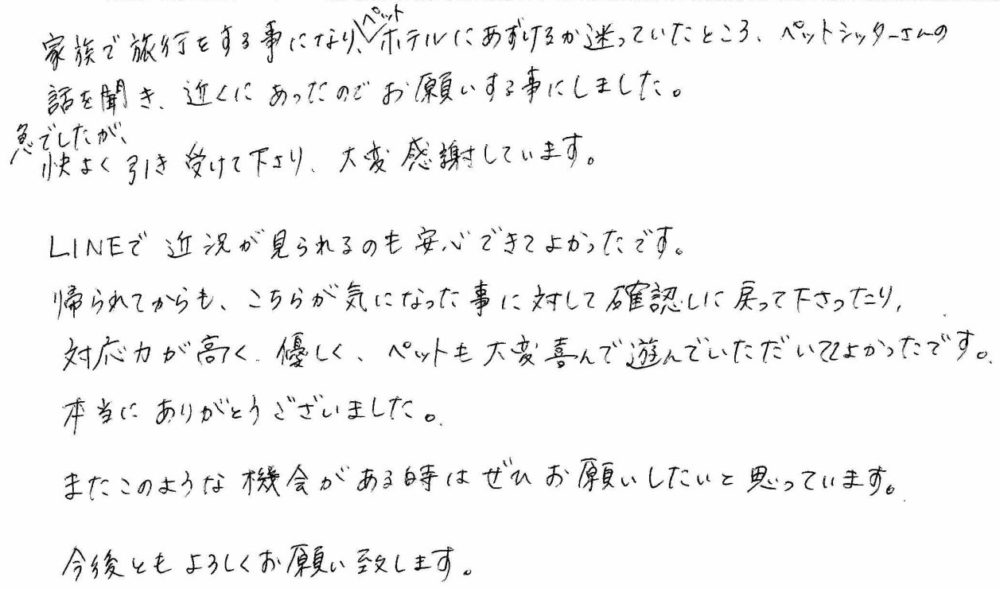 家族で旅行をする事になり、ペットホテルにあずけるか迷っていたところ、ペットシッターさんの
話を聞き、近くにあったのでお願いする事にしました。
急でしたが、
快よく引き受けて下さり、大変感謝しています。
LINEで近況が見られるのも安心できてよかったです。
帰られてからも、こちらが気になった事に対して確認しに戻って下さったり、
対応力が高く、優しく、ペットも大変喜んで遊んでいただいてよかったです。
本当にありがとうございました。
またこのような機会がある時はぜひお願いしたいと思っています。
今後ともよろしくお願い致します。